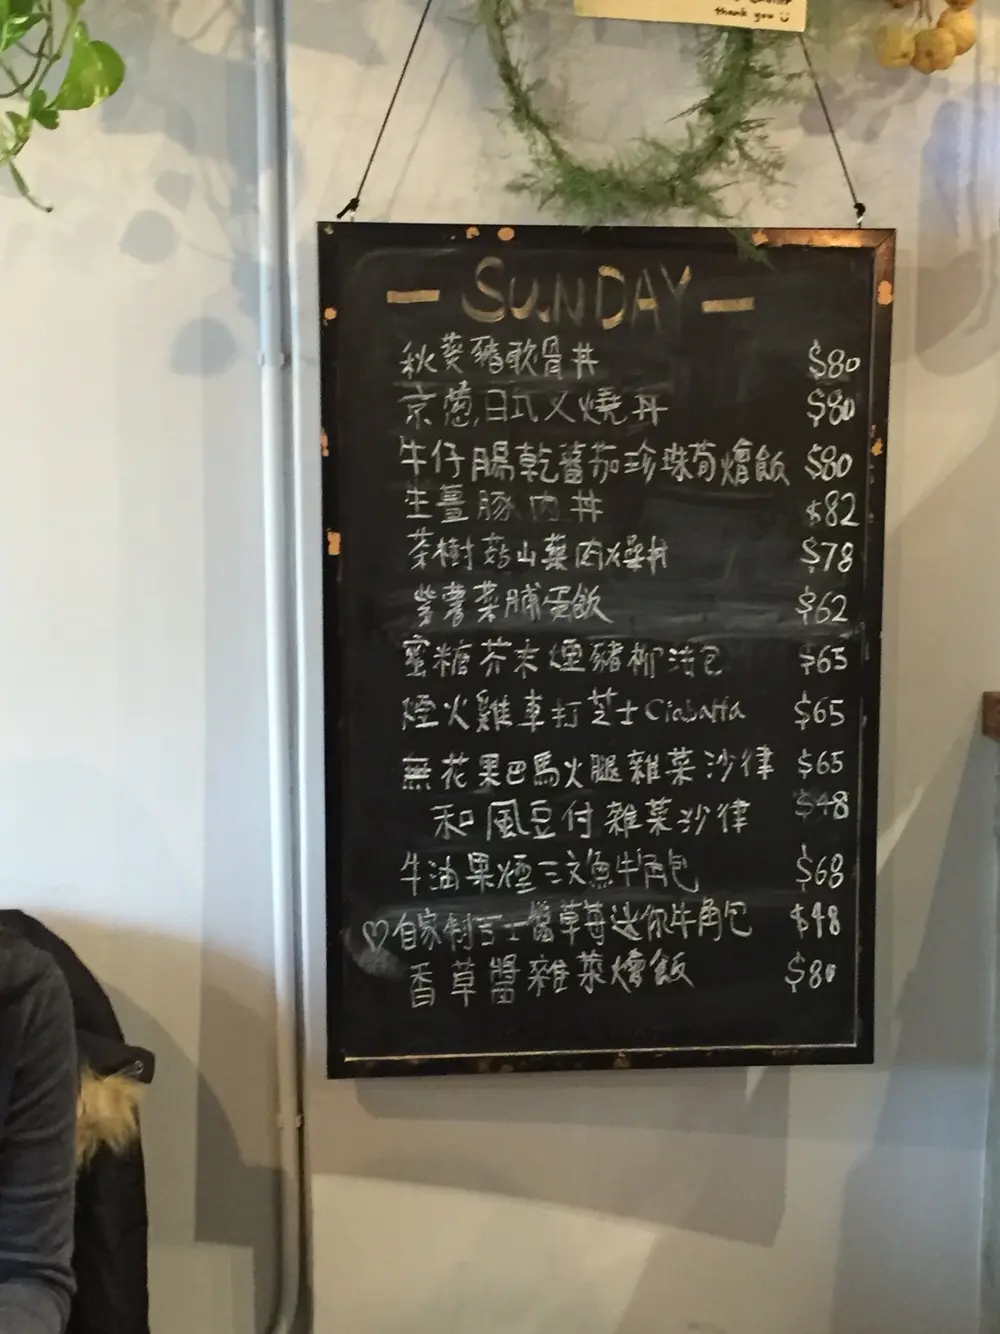 thank you
- SUNDAY -
秋葵豬軟骨丼 $80
京葱日式叉燒丼 $80
牛仔腸乾蕃茄珍珠荀燴飯 $80
生薑豚肉丼 $82
茶樹菇山藥肉燥丼 $78
紫薯菜脯蛋飯 $62
蜜糖芥末煙豬柳包 $65
煙火雞車打芝士Ciabatta $65
無花果巴馬火腿雜菜沙律 $65
和風豆付雜菜沙律 $48
牛油果煙三文魚牛角包 $68
♡自家制吉士醬草莓迷你牛角包 $48
香草醬雜菜燴飯 $80